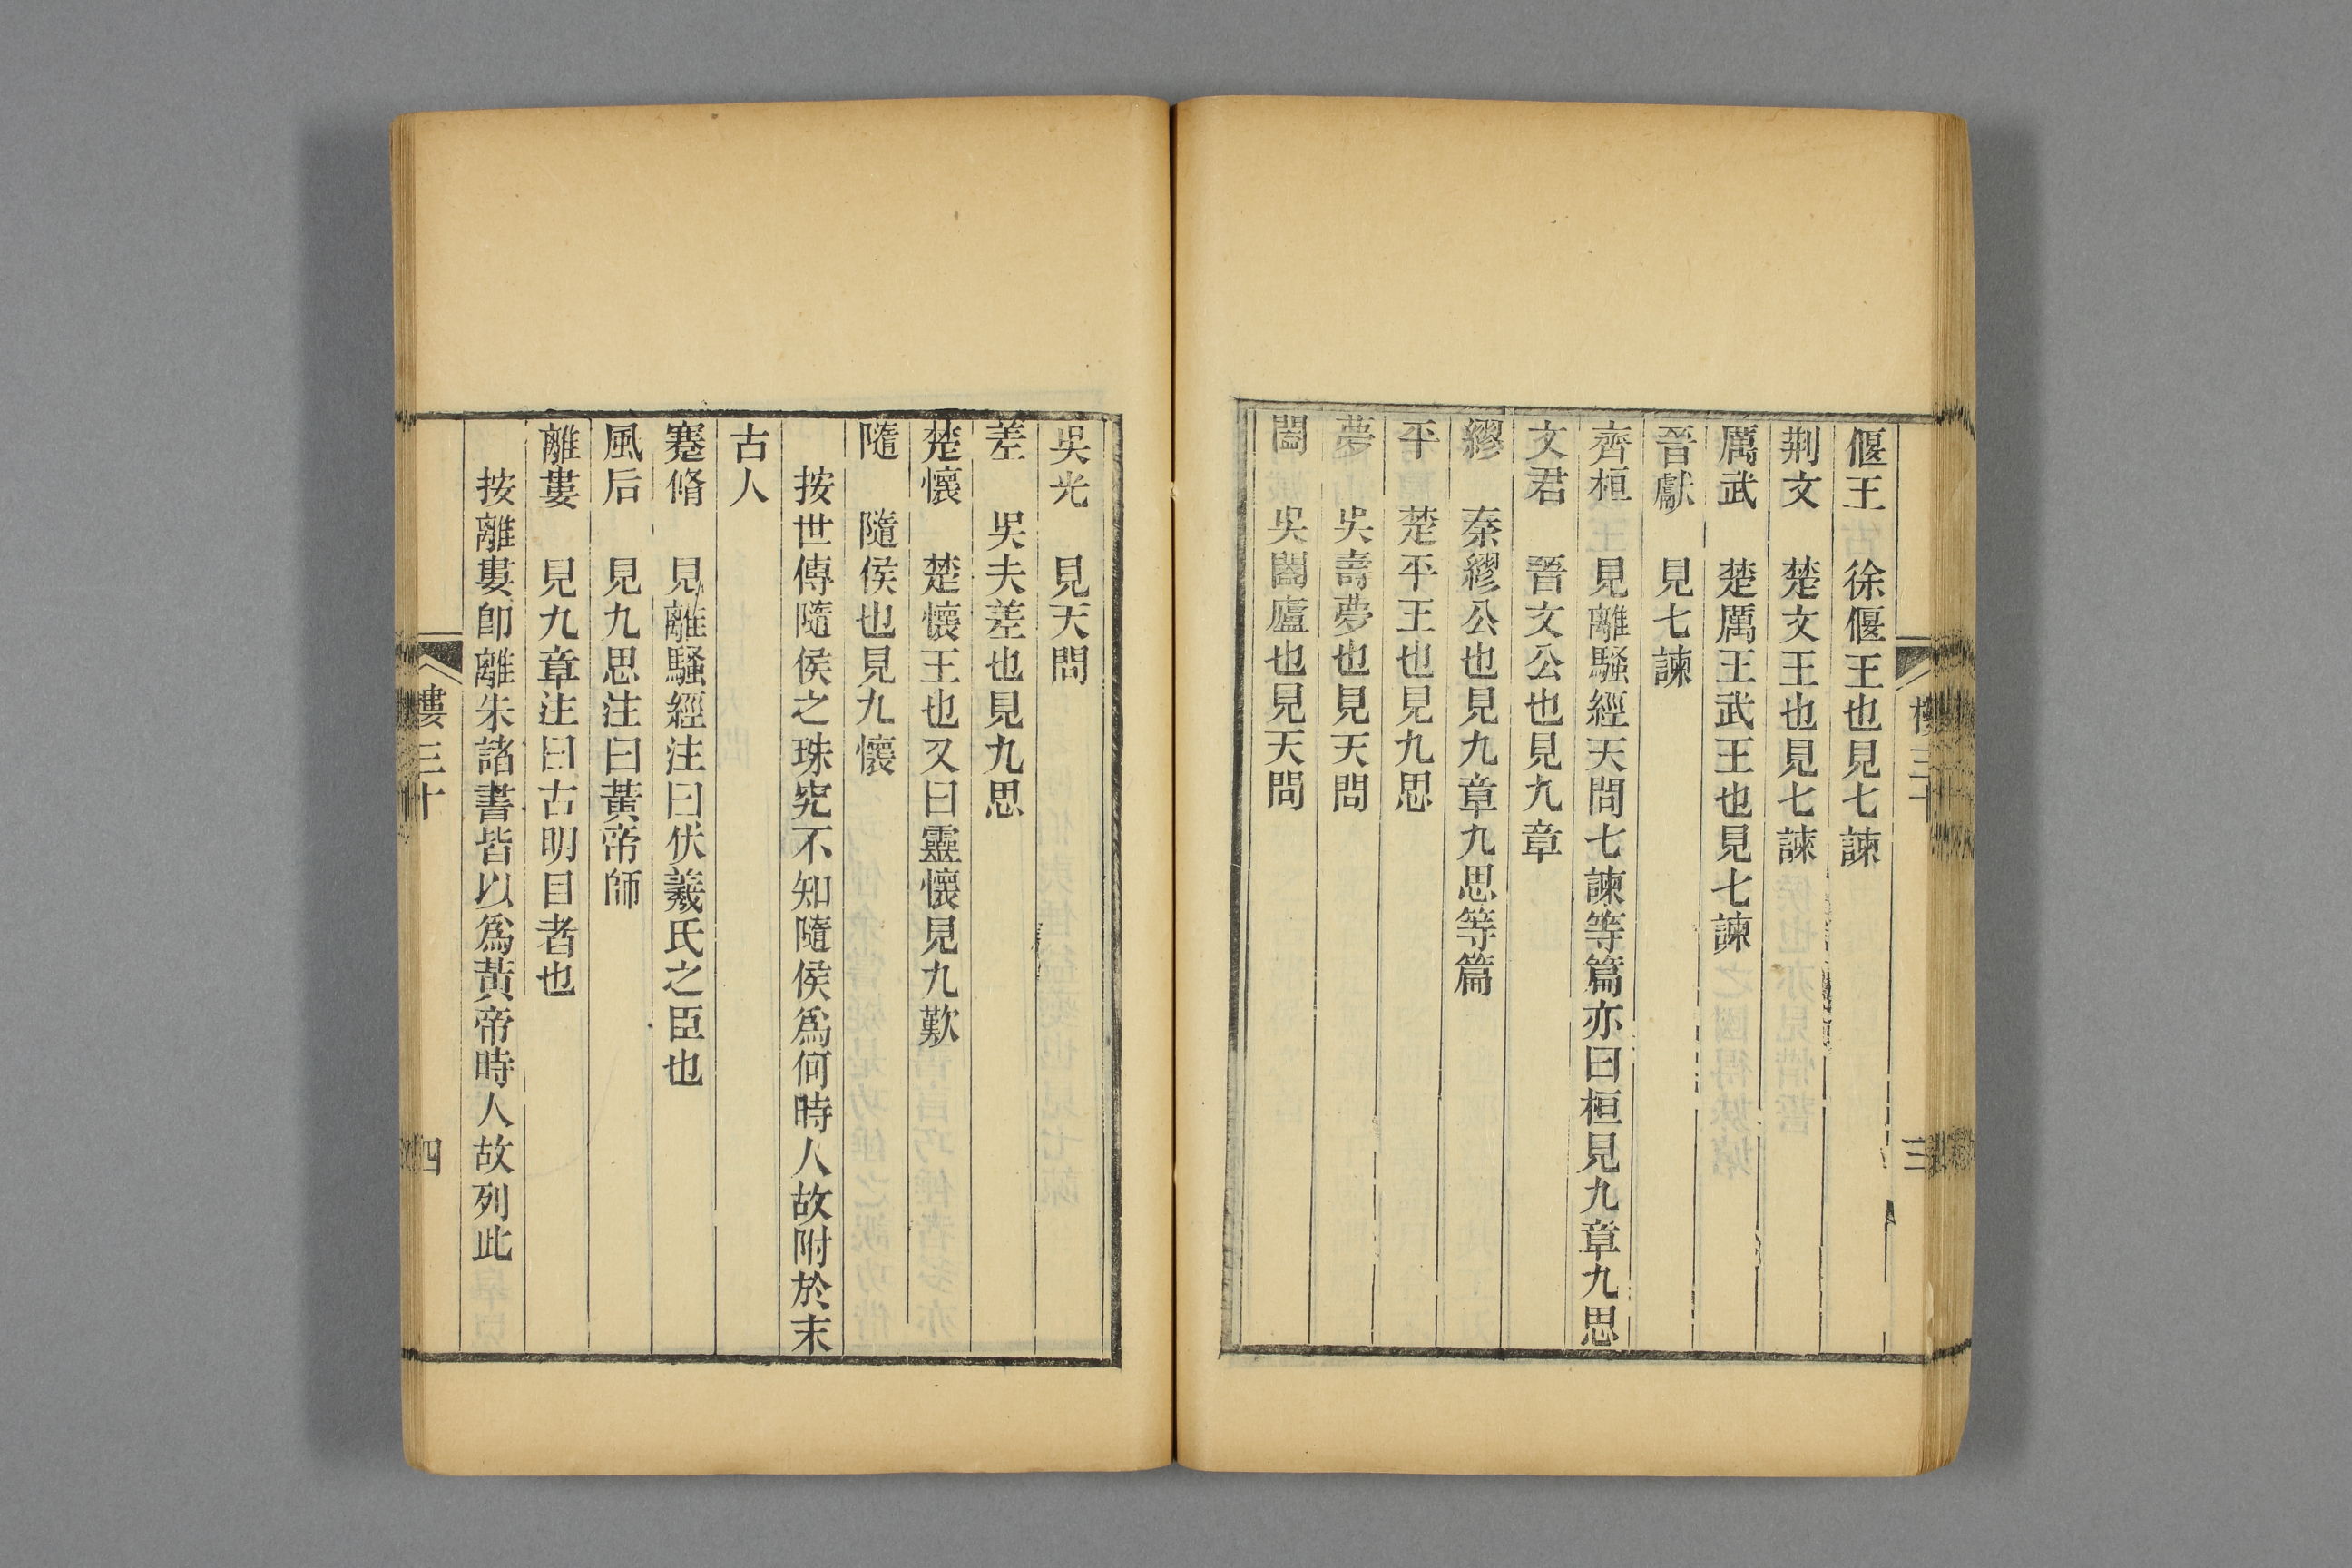 偃王　徐偃王也見七諫
荆文　楚文王也見七諫
厲武　楚厲王武王也見七諫
晉獻　見七諫
齊桓　見離騷經天問七諫等篇亦曰桓見九章九思
文君　晉文公也見九章
繆　秦繆公也見九章九思等篇
平　楚平王也見九思
夢　吳壽夢也見天問
闔　吳闔廬也見天問
三
吳光　見天問
差　吳夫差也見九思
楚懷　楚懷王也又曰靈懷見九歎
隨　隨侯也見九懷
按世傳隨侯之珠究不知隨侯爲何時人故附於末
古人
蹇脩　見離騷經注曰伏羲氏之臣也
風后　見九思注曰黃帝師
離婁　見九章注曰古明目者也
按離婁卽離朱諸書皆以爲黃帝時人故列此
三十
四